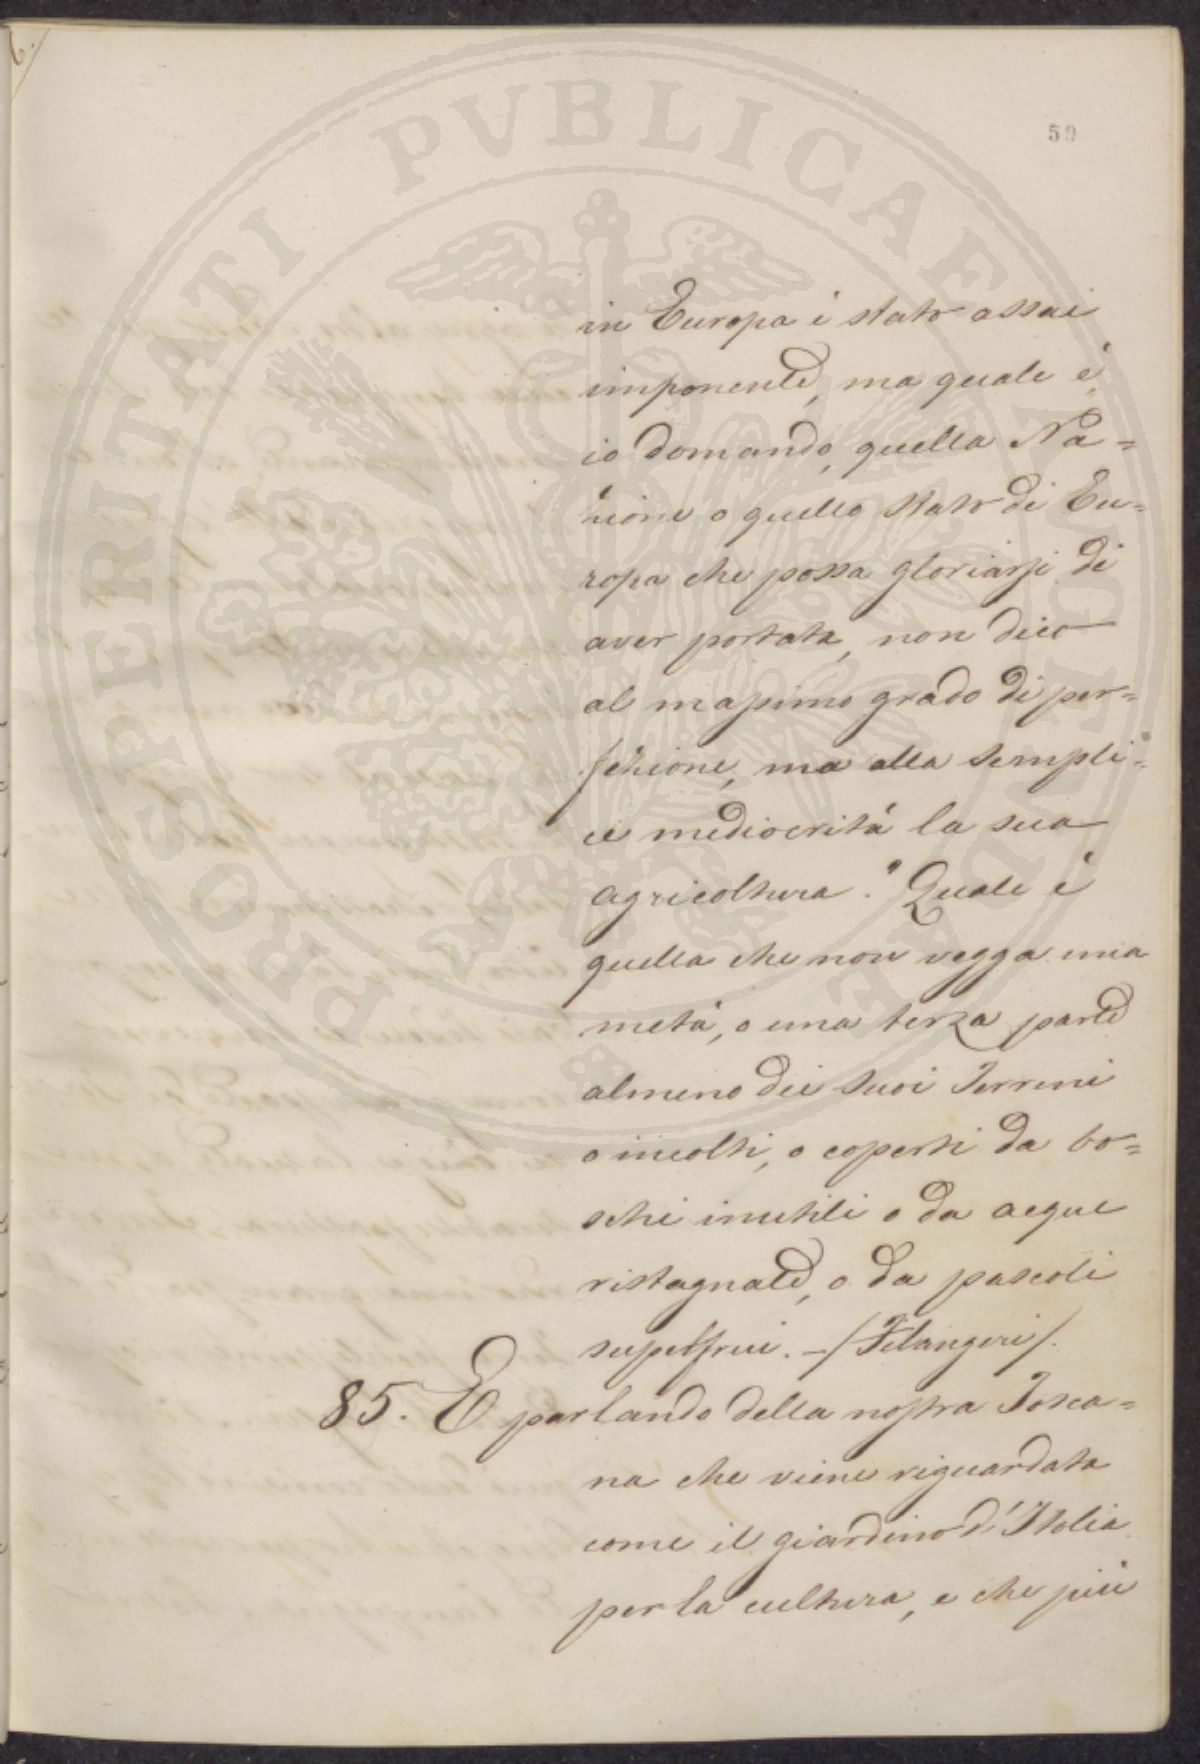 59
in Europa è stato assai
imponente, ma quale è,
io domando, quella Na=
zione o quello stato di Eu=
ropa che possa gloriarsi di
aver portata, non dico
al massimo grado di per=
fezione, ma alla sempli=
ce mediocrità la sua
agricoltura? Quale è
quella che non vegga una
metà, o una terza parte
almeno dei suoi Terreni
o incolti, o coperti da bo=
schi inutili o da acque
ristagnate, o da pascoli
superflui. – / Filangeri /.
85. E parlando della nostra Tosca=
na che viene riguardata
come il giardino d'Italia
per la cultura, e che più
PROSPERITATI PVBLICAE AVGENDAE